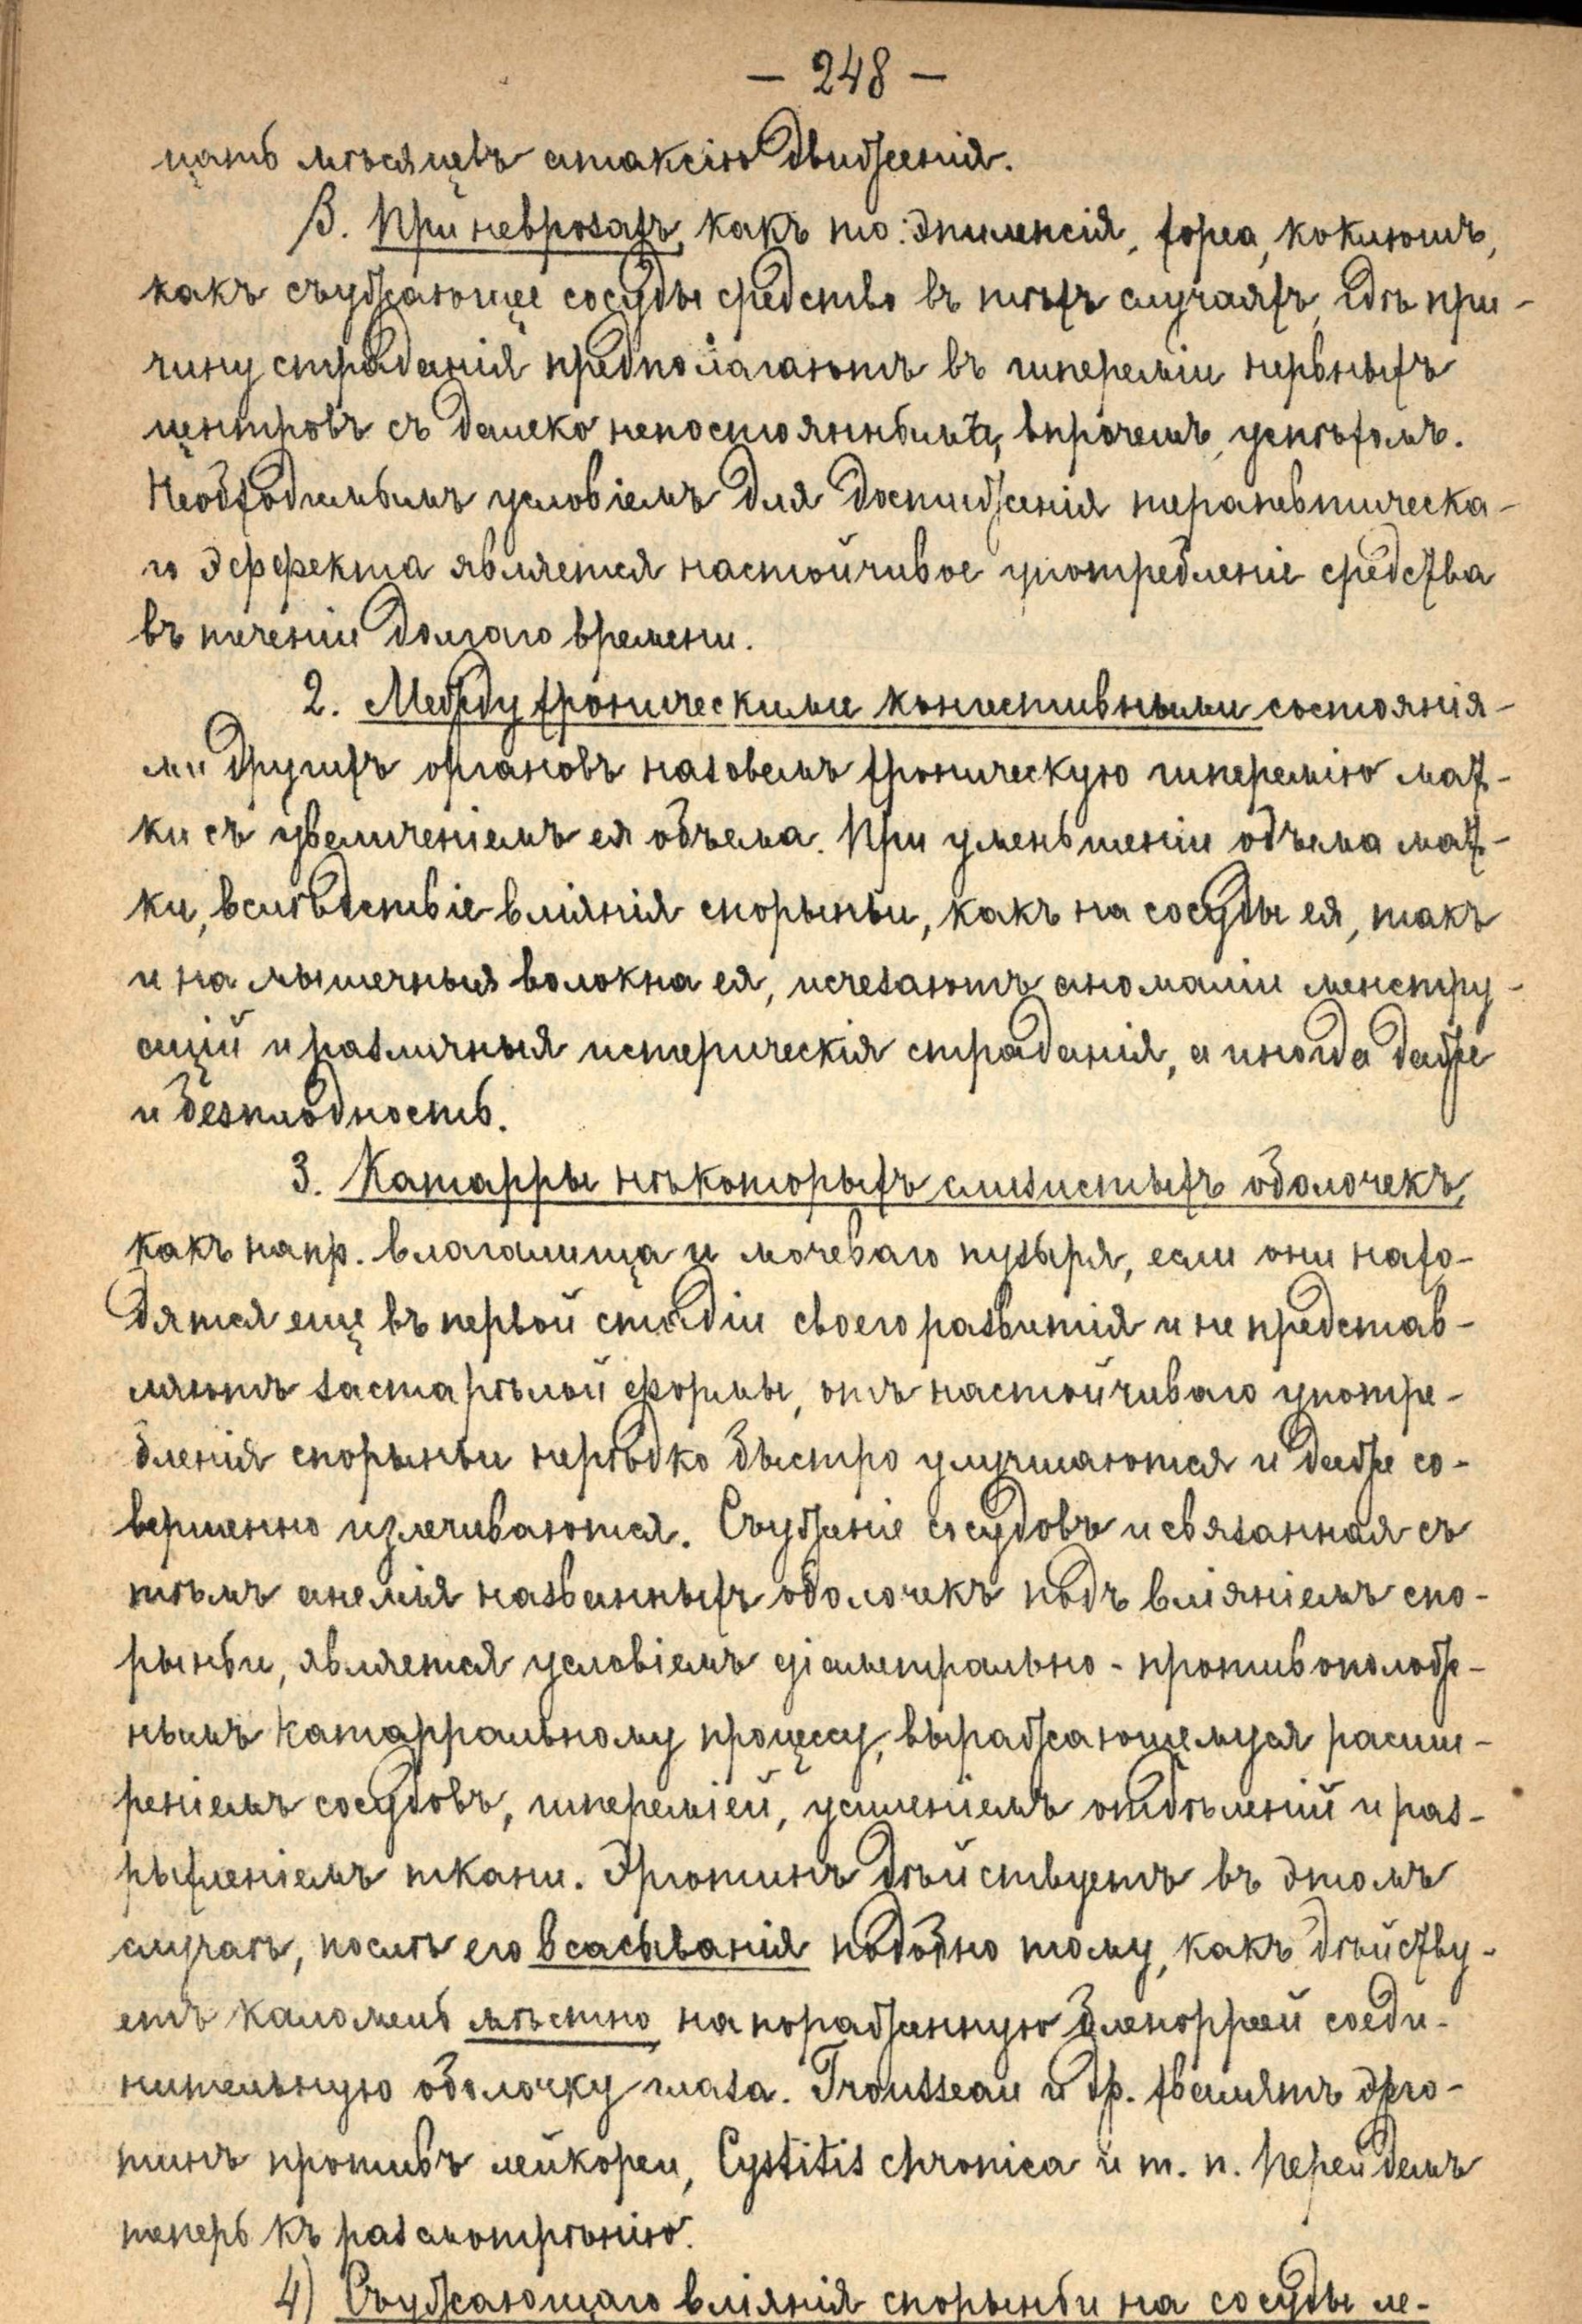 — 248 —
цать мѣсяцевъ атаксію движенія.
В. При неврозахъ, какъ то: эпилепсія, хореа, коклюшъ,
какъ съуживающее сосуды средство въ тѣхъ случаяхъ, гдѣ при-
чину страданія предполагаютъ въ гипереміи нервныхъ
центровъ съ далеко непостояннымъ, впрочемъ, успѣхомъ.
Необходимымъ условіемъ для достиженія терапевтическа-
го эффекта является настойчивое употребленіе средства
въ теченіи долгаго времени.
2. Между хроническими конгестивными состоянія-
ми другихъ органовъ назовемъ хроническую гиперемію мат-
ки съ увеличеніемъ ея объема. При уменьшеніи объема мат-
ки, вслѣдствіе вліянія спорыньи, какъ на сосуды ея, такъ
и на мышечныя волокна ея, исчезаютъ аномаліи менстру-
аціи и различныя истерическія страданія, а иногда даже
и безплодность.
3. Катарры нѣкоторыхъ слизистыхъ оболочекъ,
какъ напр. влагалища и мочеваго пузыря, если они нахо-
дятся еще въ первой стадіи своего развитія и не представ-
ляютъ застарѣлой формы, отъ настойчиваго употре-
бленія спорыньи нерѣдко быстро улучшаются и даже со-
вершенно излечиваются. Съуженіе сосудовъ и связанная съ
тѣмъ анемія названныхъ оболочекъ подъ вліяніемъ спо-
рыньи, является условіемъ діаметрально-противополож-
нымъ катарральному процессу, выражающемуся расши-
реніемъ сосудовъ, гипереміей, усиленіемъ отдѣленій и раз-
рыхленіемъ ткани. Эрготинъ дѣйствуетъ въ этомъ
случаѣ, послѣ его всасыванія подобно тому, какъ дѣйству-
етъ каломель мѣстно на пораженную бленорреей соеди-
нительную оболочку глаза. Trousseau и др. хвалятъ эрго-
тинъ противъ лейкореи, Cystitis chronica и т. п. Перейдемъ
теперь къ разсмотрѣнію.
4) Съужающаго вліянія спорыньи на сосуды ле-